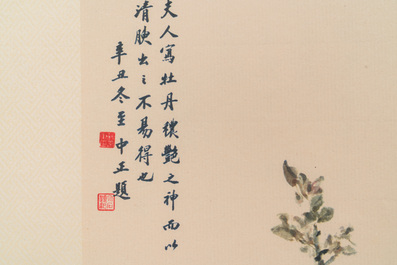 夫人寫牡丹穠艷之神而以
清腴出之不易得也
辛丑冬至中正題